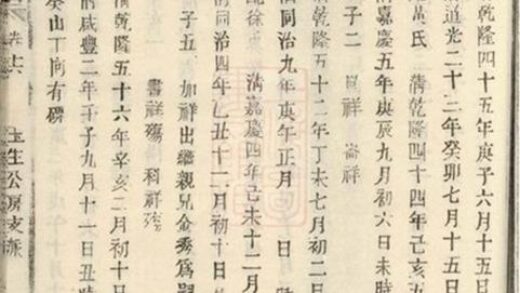 乾隆四十五年庚子六月十五日
道光二十二年癸卯七月十五
萬氏 清乾隆四十四年己亥五
嘉慶五年庚辰九月初六日未時
子二 昌祥 崙祥
清乾隆五十二年丁未七月初二日
同治九年庚午正月 日 時
配徐 清嘉慶四年己未十二月
同治四年乙丑十一月初十日
子五 加祥出繼親兄金秀為嗣
書祥殤 科祥殤
清乾隆五十六年辛亥二月初十日
咸豐二年壬子九月十一日丑時
癸山丁向有碑
卷 六 玉生公房支派